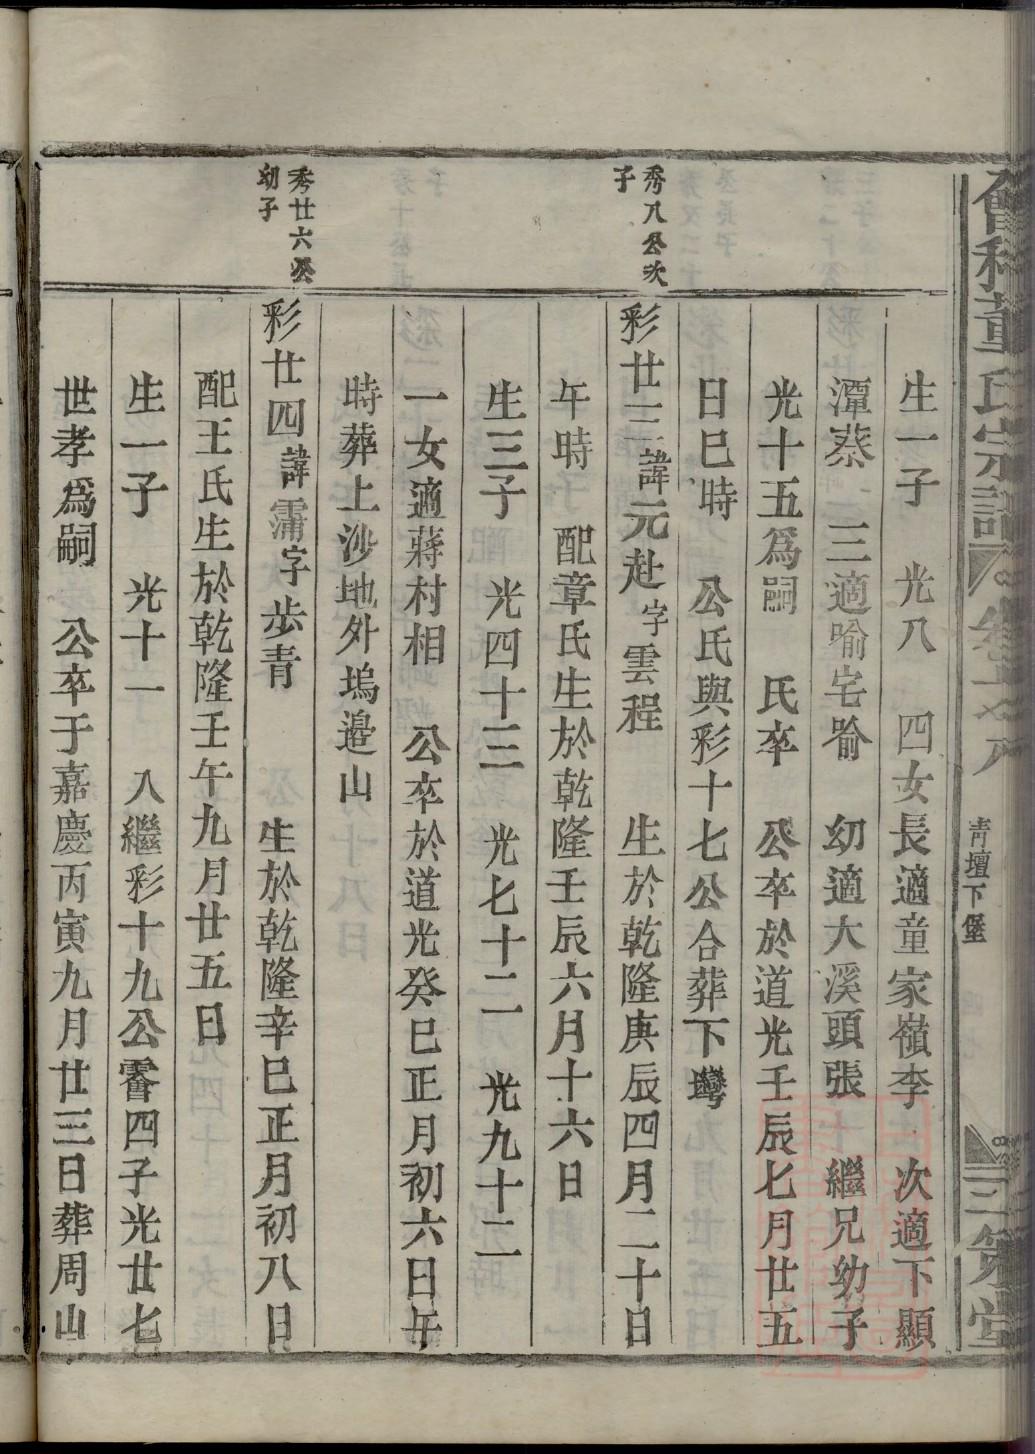 會稽董氏宗譜
青壇下堡
三策堂
生一子　光八　四女長適童家嶺李　次適下顯
潭蔡　三適喻宅喻　幼適大溪頭張　繼兄幼子
光十五爲嗣　氏卒　公卒於道光壬辰七月廿五
日巳時　公氏與彩十七公合葬下灣
秀八公次子
彩廿三諱元赴字雲程　生於乾隆庚辰四月二十日
午時　配章氏生於乾隆壬辰六月十六日
生三子　光四十三　光七十二　光九十二
一女適蔣村相　公卒於道光癸巳正月初六日午
時葬上沙地外塢邉山
秀廿六公幼子
彩廿四諱霈字步青　生於乾隆辛巳正月初八日
配王氏生於乾隆壬午九月廿五日
生一子　光十一　入繼彩十九公霱四子光廿七
世孝爲嗣　公卒于嘉慶丙寅九月廿三日葬周山